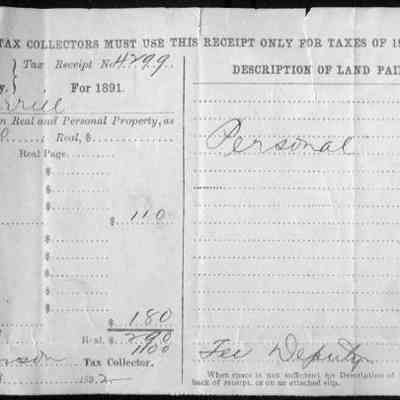 TAX COLLECTORS MUST USE THIS RECEIPT ONLY FOR TAXES OF 18
Tax Receipt No. 4299.
y. For 1891.
n Real and Personal Property, as
Real, $
Real Page
$
$
$
$ 110
$
$
$
$ 180
Real. $ 290
1100
Tax Collector.
1892
DESCRIPTION OF LAND PAI
Personal
Fee Deputy
When space is not sufficient for Description of
back of receipt, or on an attached slip.